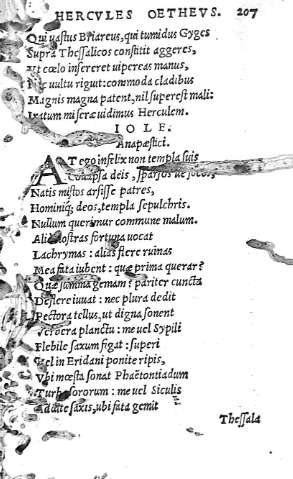 HERCVLES OETHEVS. 207
Qui vastus Briareus, qui tumidus Gyges
Supra Thessalicos constitit aggeres,
Vt cœlo insereret vipereas manus,
vultu riguit: commoda cladibus
Magnis magna patent, nil superest mali:
Iratum miseræ uidimus Herculem.
IOLE.
Anapæstici.
AT ego infelix non templa suis
sparsos
Natis mistos arsisse patres,
Hominiq; deos, templa sepulchris.
Nullum querimur commune malum.
Alio nostras fortuna uocat
Lachrymas: alias flere ruinas
Mea fata iubent: quæ prima querar?
Quæ summa gemam? pariter cuncta
Deflere iuuat: nec plura dedit
Pectora tellus, ut digna sonent
Verbera planctu: me uel Sypili
Flebile saxum figat: superi
Vel in Eridani ponite ripis,
Vbi mœsta sonat Phaëtontiadum
Turba sororum: me uel Siculis
Addite saxis, ubi fata gemit
Thessala